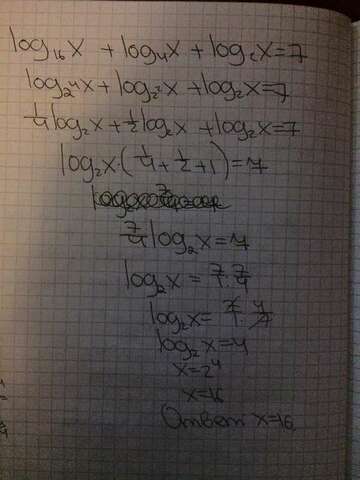 log₁₆x + log₄x + log₂x = 7
log₂⁴x + log₂²x + log₂x = 7
1/4 log₂x + 1/2 log₂x + log₂x = 7
log₂x · (1/4 + 1/2 + 1) = 7
7/4 log₂x = 7
log₂x = 7/1 · 7/4
log₂x = 7/1 · 4/7
log₂x = 4
x = 2⁴
x = 16
Ответ x = 16.